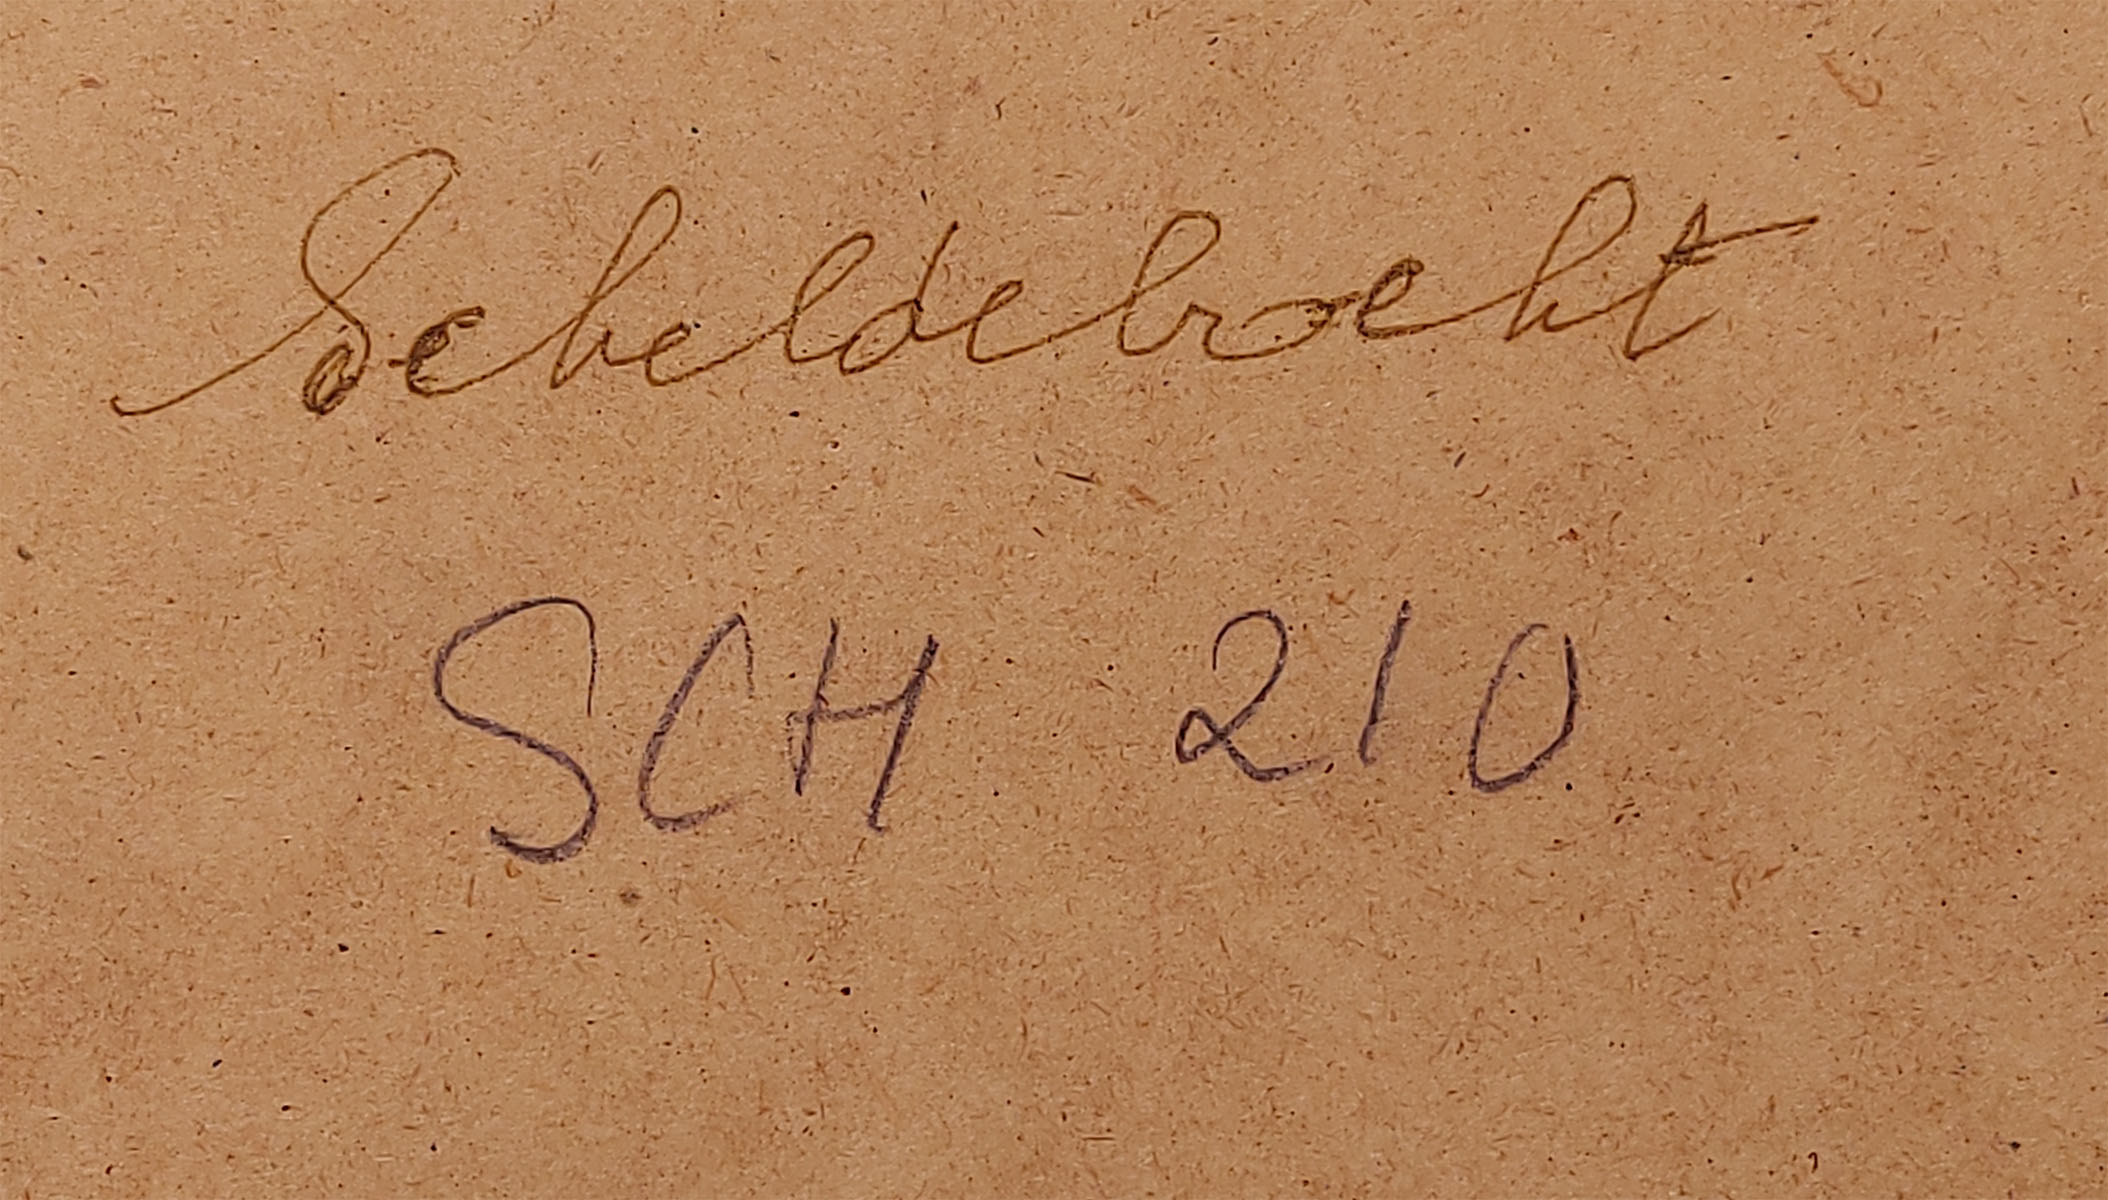 Scheldebocht
SCH 210